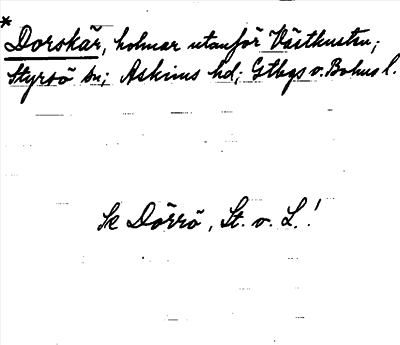 * Dorskär, holmar utanför Västkusten;
Styrsö sn; Askims hd; Gtbgs o. Bohus l.
Se Dörrö, St. o. L.!